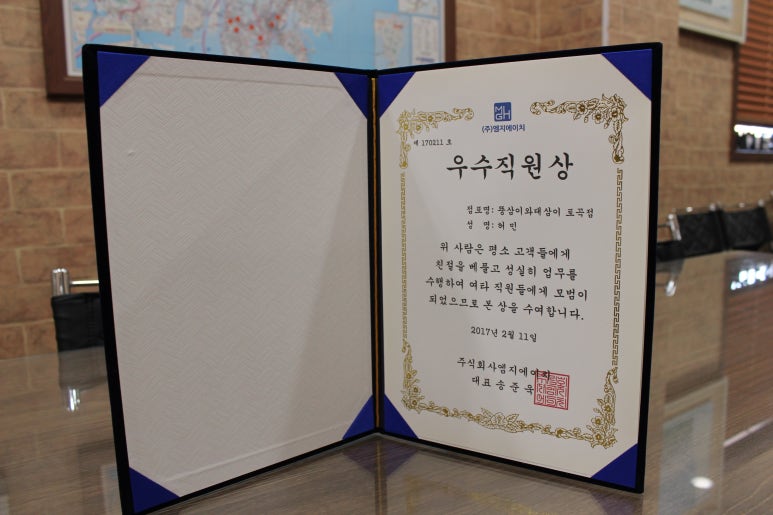 MGH
(주)엠지에이치
제 170211 호
우수직원상
점포명: 뚱삼이와대삼이 토곡점
성 명: 허민
위 사람은 평소 고객들에게
친절을 베풀고 성실히 업무를
수행하여 여타 직원들에게 모범이
되었으므로 본 상을 수여합니다.
2017년 2월 11일
주식회사엠지에이치
대표 송준욱